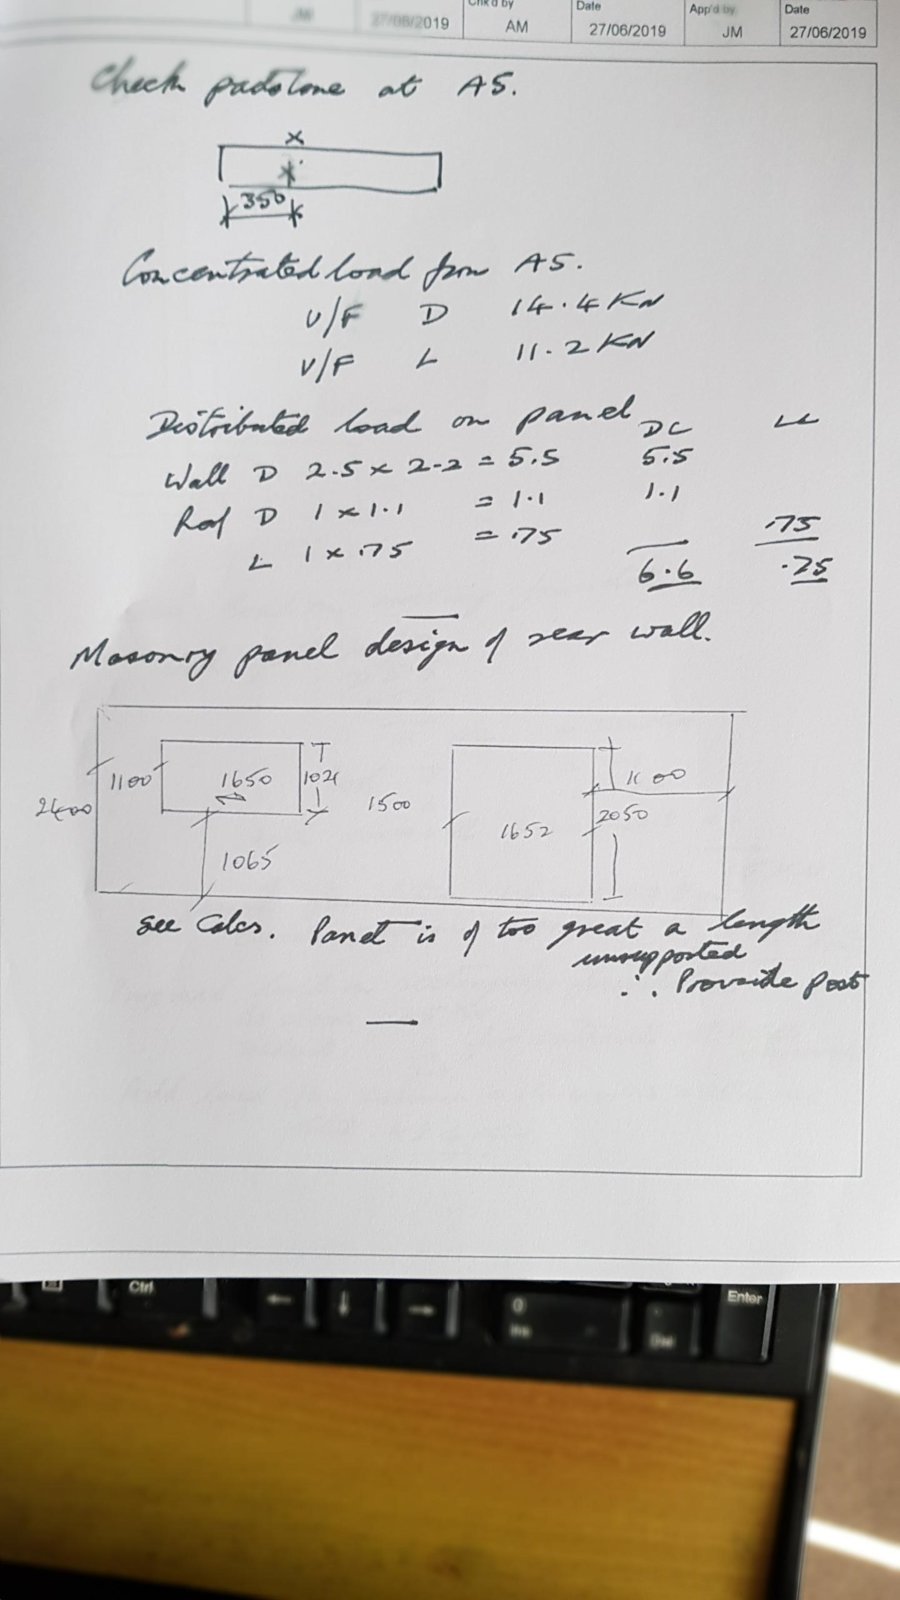 JM
27/06/2019
Chk'd by
AM
Date
27/06/2019
App'd by
JM
Date
27/06/2019
Check padstone at A5.
350
Concentrated load from A5.
U/F D 14.4 KN
U/F L 11.2 KN
Distributed load on panel
DL LL
Wall D 2.5 x 2.2 = 5.5 5.5
Roof D 1 x 1.1 = 1.1 1.1
L 1 x .75 = .75 .75
6.6 .75
Masonry panel design of rear wall.
2400
1100
1650
1500
1652
2050
1065
See Calcs. Panel is of too great a length
unsupported
∴ Provide Post
Ctrl
←
↓
→
0
Ins
Del
Enter